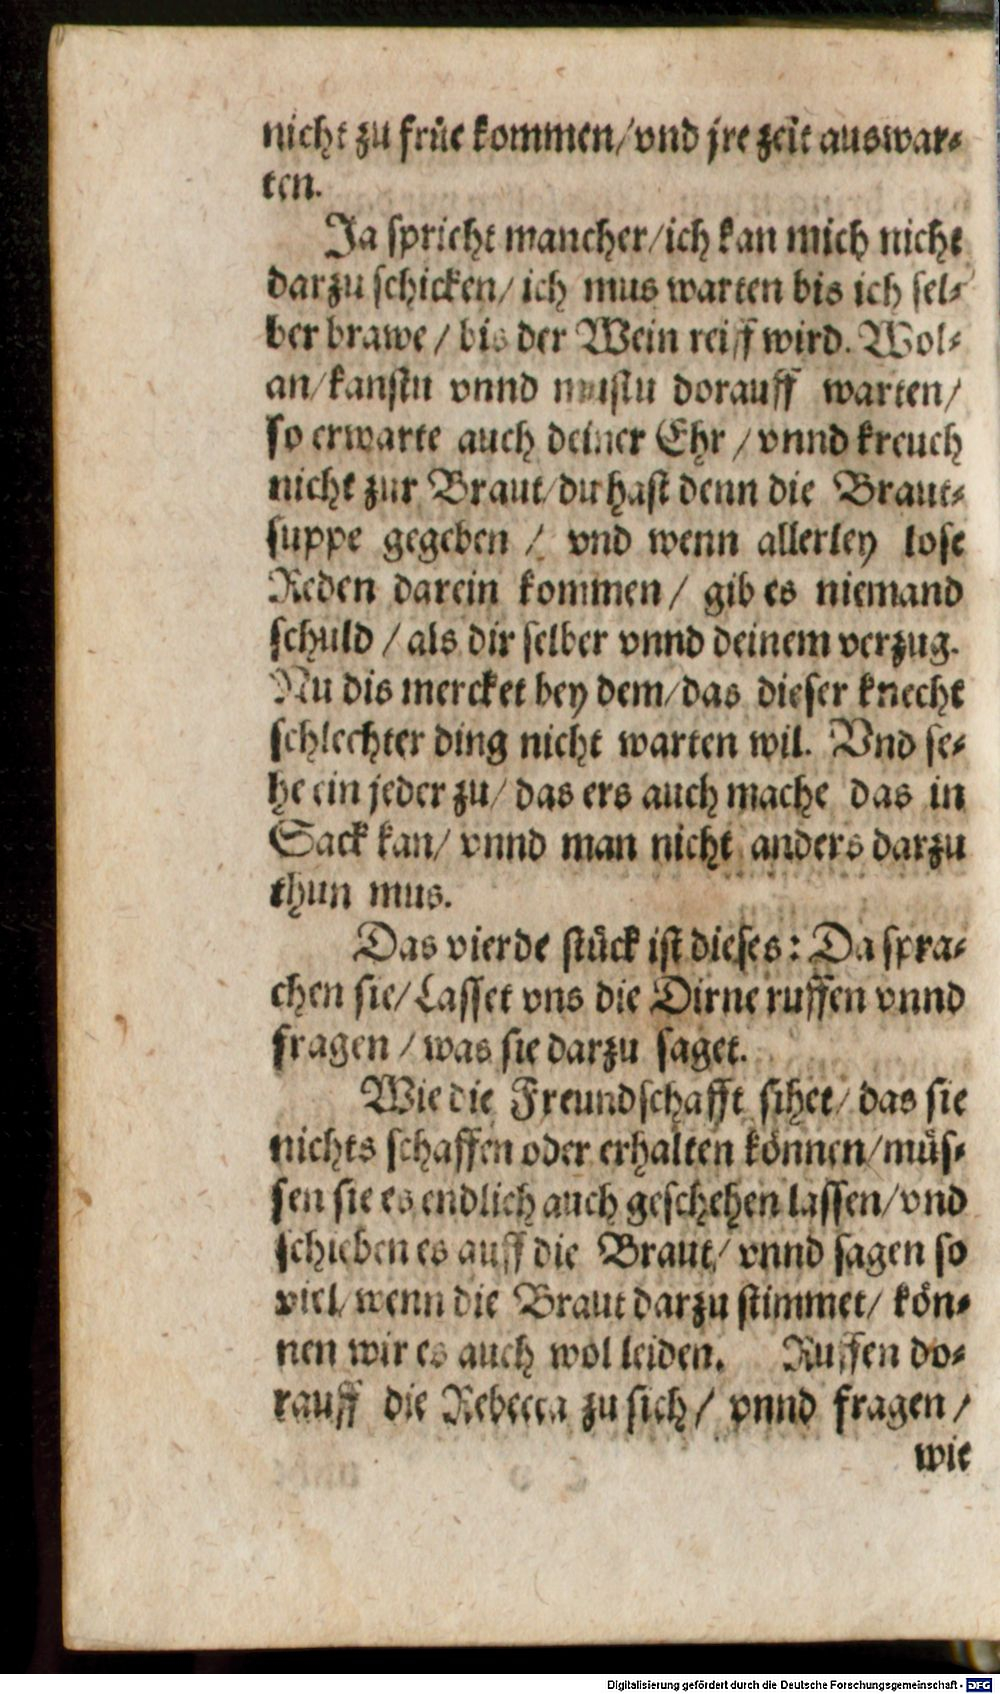 nicht zu früe kommen/vnd jre zeit auswar⸗
ten.
Ja spricht mancher/ich kan mich nicht
darzu schicken/ ich mus warten bis ich sel⸗
ber brawe / bis der Wein reiff wird. Wol⸗
an/kanstu vnnd mustu dorauff warten/
so erwarte auch deiner Ehr / vnnd kreuch
nicht zur Braut/du hast denn die Braut⸗
suppe gegeben / vnd wenn allerley lose
Reden darein kommen/ gib es niemand
schuld / als dir selber vnnd deinem verzug.
Nu dis mercket bey dem/das dieser knecht
schlechter ding nicht warten wil. Vnd se⸗
he ein jeder zu/ das ers auch mache das in
Sack kan/ vnnd man nicht anders darzu
thun mus.
Das vierde stück ist dieses: Da spra⸗
chen sie/Lasset vns die Dirne ruffen vnnd
fragen / was sie darzu saget.
Wie die Freundschafft sihet/ das sie
nichts schaffen oder erhalten können/müs⸗
sen sie es endlich auch geschehen lassen/vnd
schieben es auff die Braut/ vnnd sagen so
viel/wenn die Braut darzu stimmet/ kön⸗
nen wir es auch wol leiden. Ruffen do⸗
rauff die Rebecca zu sich/ vnnd fragen/
wie
Digitalisierung gefördert durch die Deutsche Forschungsgemeinschaft - DFG